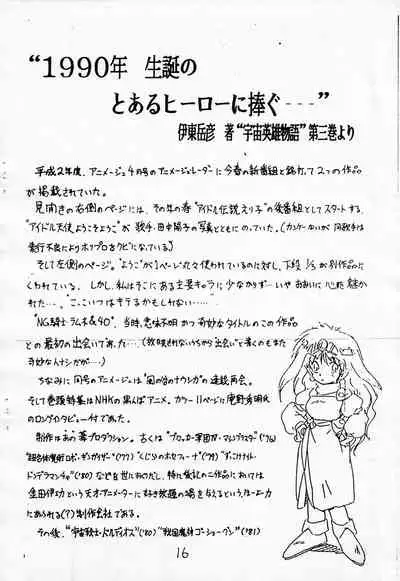 “1990年 生誕の
とあるヒーローに捧ぐ---”
伊東岳彦 著 “宇宙英雄物語” 第三巻より
平成2年度、アニメージュ4月号のアニメージュレーダーに今春の新番組と銘打って2つの作品
が掲載されていた。
見開きの右側のページには、その年の春“アイドル伝説えり子”の後番組としてスタートする、
“アイドル天使ようこそようこ”が歌手・田中陽子の写真とともにのっていた。
そして左側のページ。“ようこ”が1ページ丸々使われているのに対し、下段1/3が別作品に
くわれている。しかし、私はそこにある主要キャラに少なからず…いやおおいに心惹
かれた…。“ここいつはキテるかもしれない……”
“NG騎士ラムネ&40”、当時、意味不明かつ奇妙なタイトルのこの作品
との最初の出会いであった…
奇妙な
ちなみに同号のアニメージュは“風の谷のナウシカ”の連載再会。
そして巻頭特集はNHKの黒んぼアニメ。カラー11ページに庵野秀明氏
のロングインタビュー付であった。
制作はあし葦プロダクション。古くは“ブロッカー軍団IV・マシンブラスター”('76)
“超合体魔術ロボ・ギンガイザー”('77) “くじらのホセフィーナ”('79) “ずっこけナイト・
ドンデラマンチャ”('80) などを世にのこしたが、特に後記の二作品においては
金田伊功という天才アニメーターに好き放題の場を与えるという
制作会社である。
その後、“宇宙戦士・バルディオス”('80) “戦国魔神ゴーショーグン”('81)
16